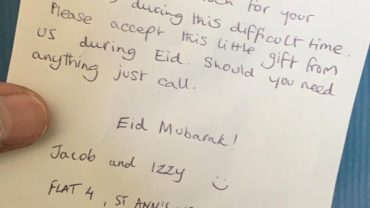 for your
during this difficult time.
Please accept this little gift from
us during Eid. Should you need
anything just call.
Eid Mubarak!
Jacob and Izzy
FLAT 4, ST ANN'S